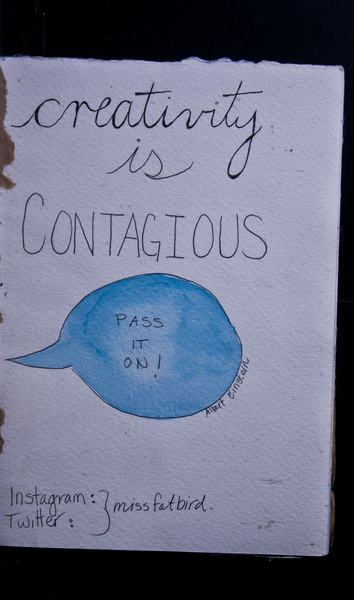 creativity
is
CONTAGIOUS
PASS
IT
ON!
Albert Einstein
Instagram: } missfatbird.
Twitter: